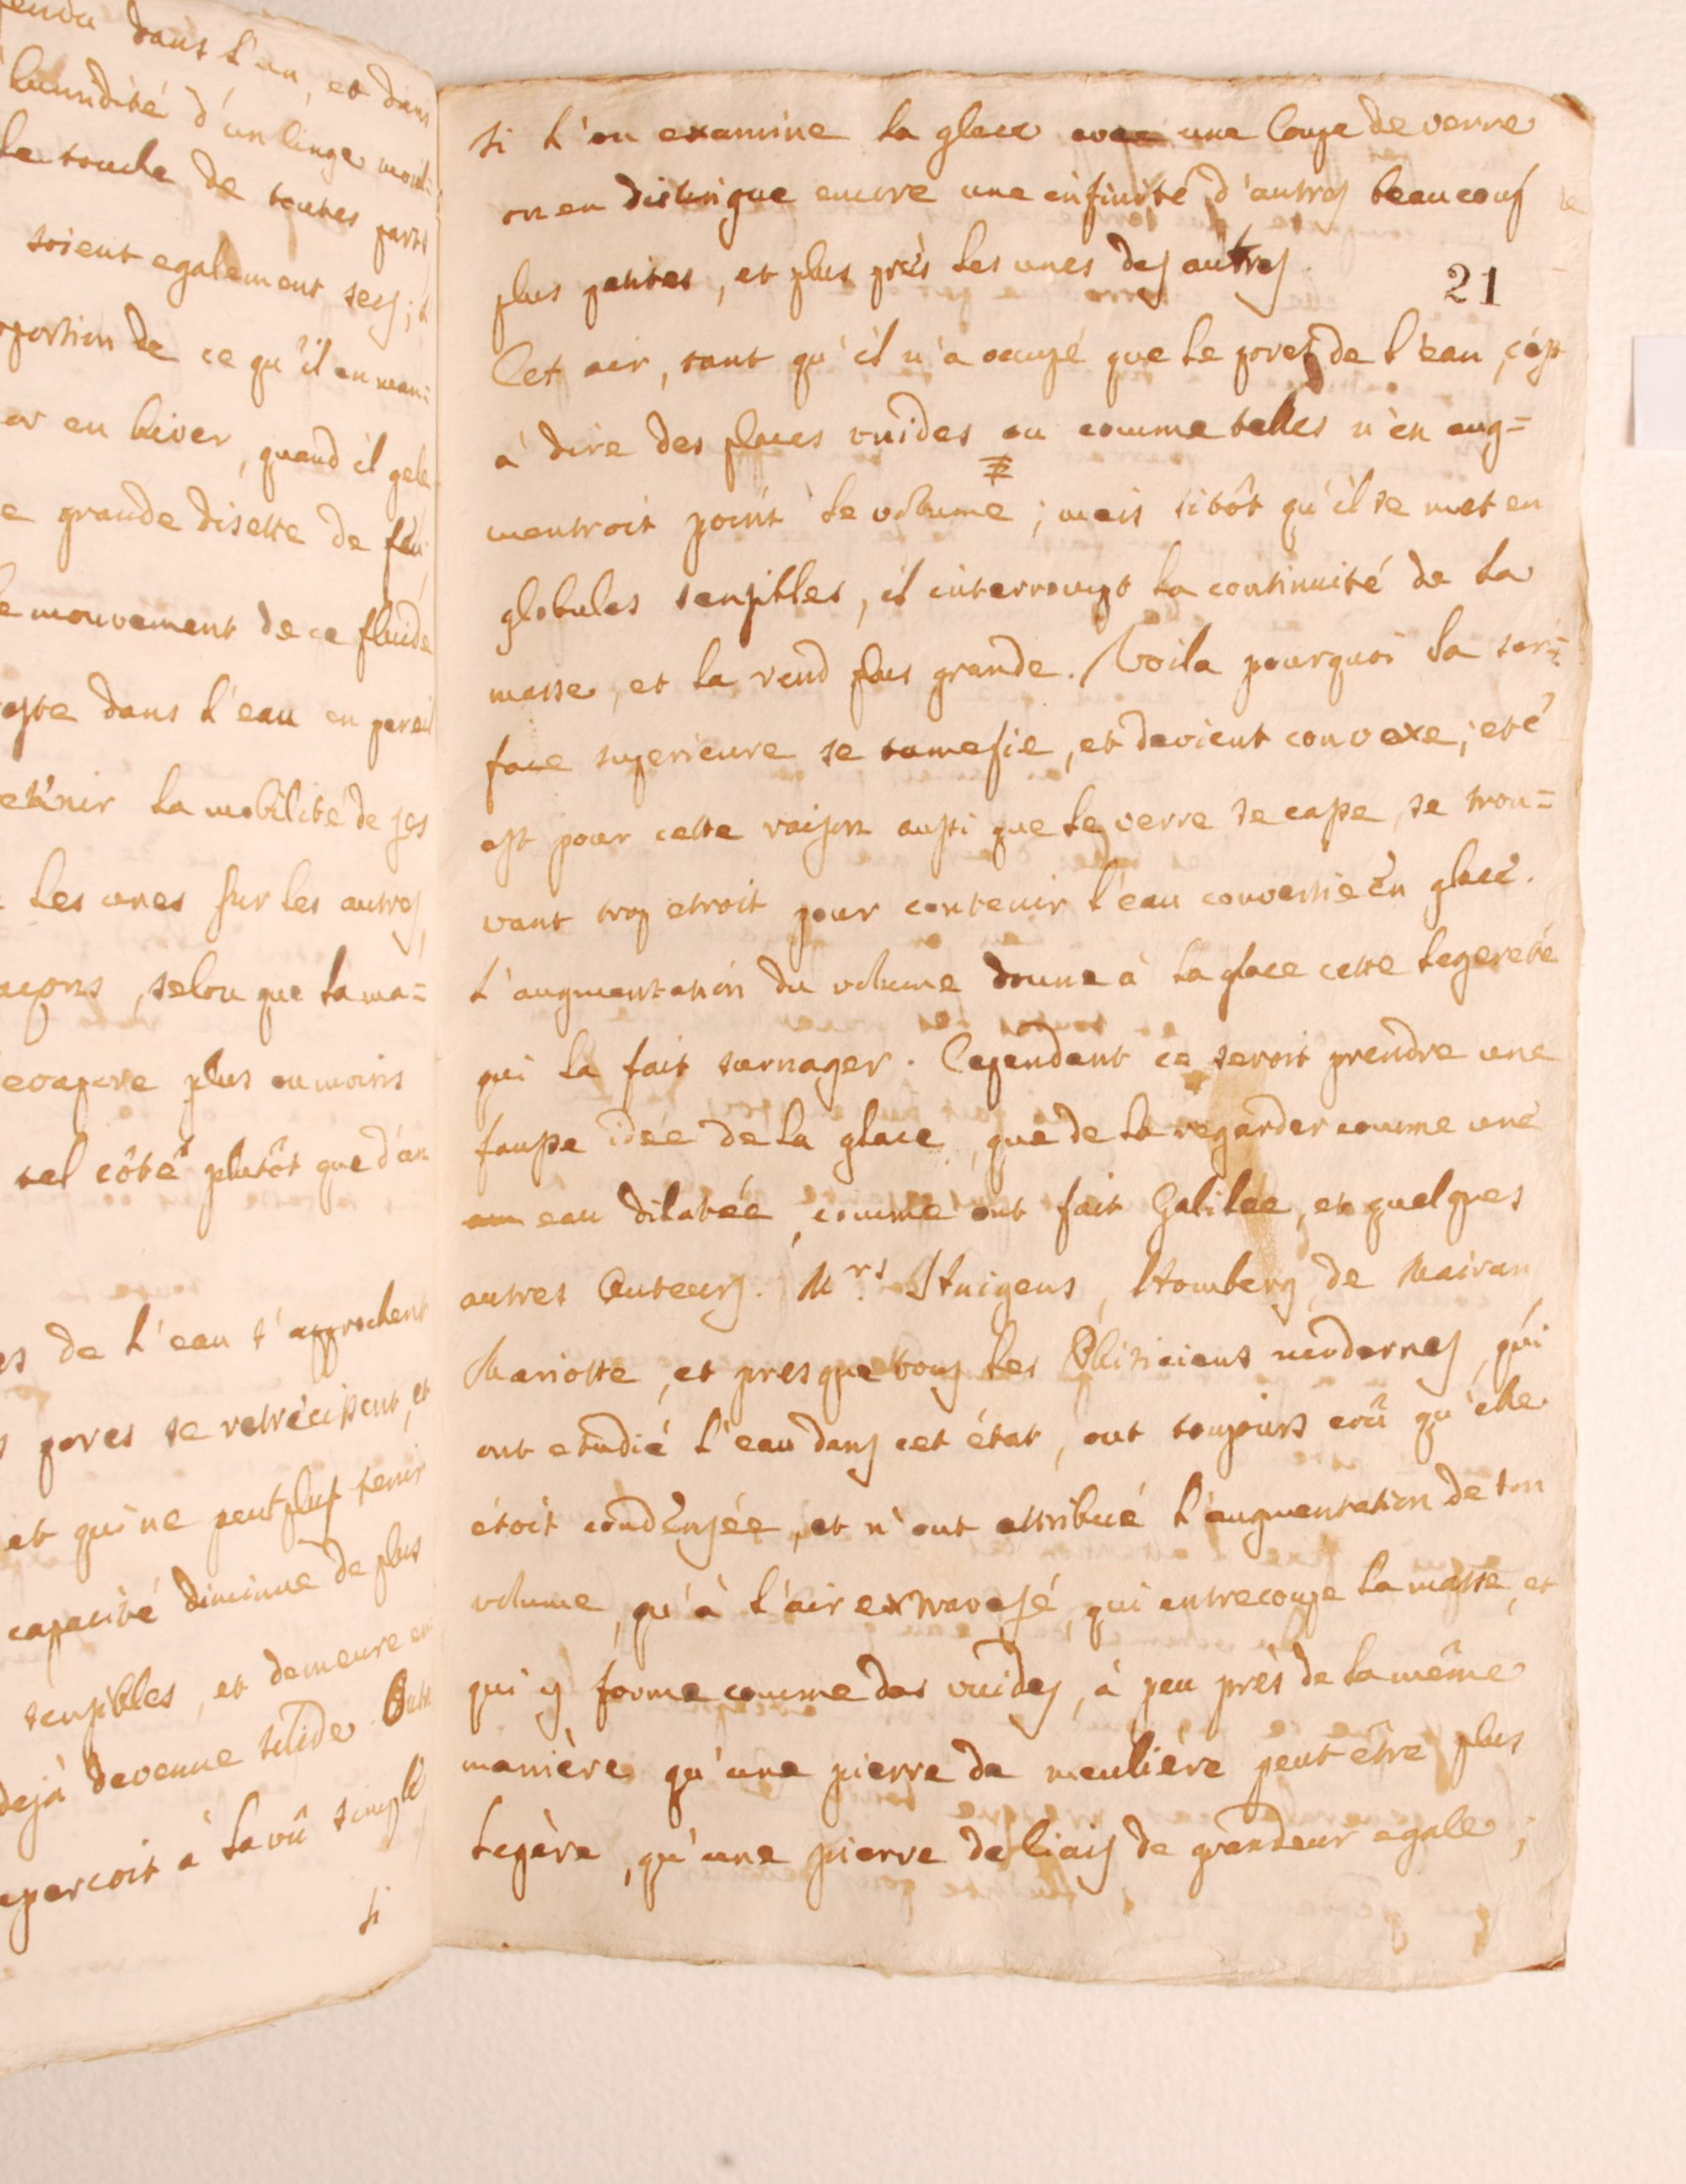 fendu dans l'eau, et dans
l'humidité d'un linge mouil=
le touche de toutes parts
soient egalement secs; à
oportion de ce qu'il en man=
er en hiver, quand il gele
e grande disette de feu
le mouvement de ce fluide
reste dans l'eau en pareil
etenir la mobilité de ses
les unes sur les autres,
açons, selon que la ma=
evapore plus ou moins
tel côté plutôt que d'un
es de l'eau s'approchent
s pores se retrécissent, et
et qui ne peut plus tenir
capacité diminue de plus
sensibles, et demeure en
deja devenue solide. Outre
aperçoit à la vû simple
si
si l'on examine la glace avec une loupe de verre
on en distingue encore une infinité d'autres beaucoup
plus petites, et plus près les unes des autres.
21
Cet air, tant qu'il n'a occupé que le pores de l'eau, c'est
à dire des places vuides ou comme telles n'en aug=
mentroit point le volume; mais sitôt qu'il se met en
globules sensibles, il interrompt la continuité de la
masse, et la rend plus grande. Voila pourquoi la sur=
face superieure se tumefie, et devient convexe; et c'
est pour cette raison aussi que le verre se casse, se trou=
vant trop etroit pour contenir l'eau convertie en glace.
L'augmentation du volume donne à la glace cette legereté
qui la fait surnager. Cependant ce seroit prendre une
fausse idée de la glace, que de la regarder comme une
eau dilatée, comme ont fait Galilee, et quelques
autres Auteurs. Mrs. Huigens, Homberg, de Mairan,
Mariotte, et presque tous les Phisiciens modernes, qui
ont etudié l'eau dans cet état, ont toujours crû qu'elle
étoit condensée, et n'ont attribué l'augmentation de son
volume, qu'à l'air extravasé, qui entrecoupe la masse, et
qui y forme comme des vuides, à peu près de la même
manière qu'une pierre de meulière peut être plus
legère, qu'une pierre de liais de grandeur egale;